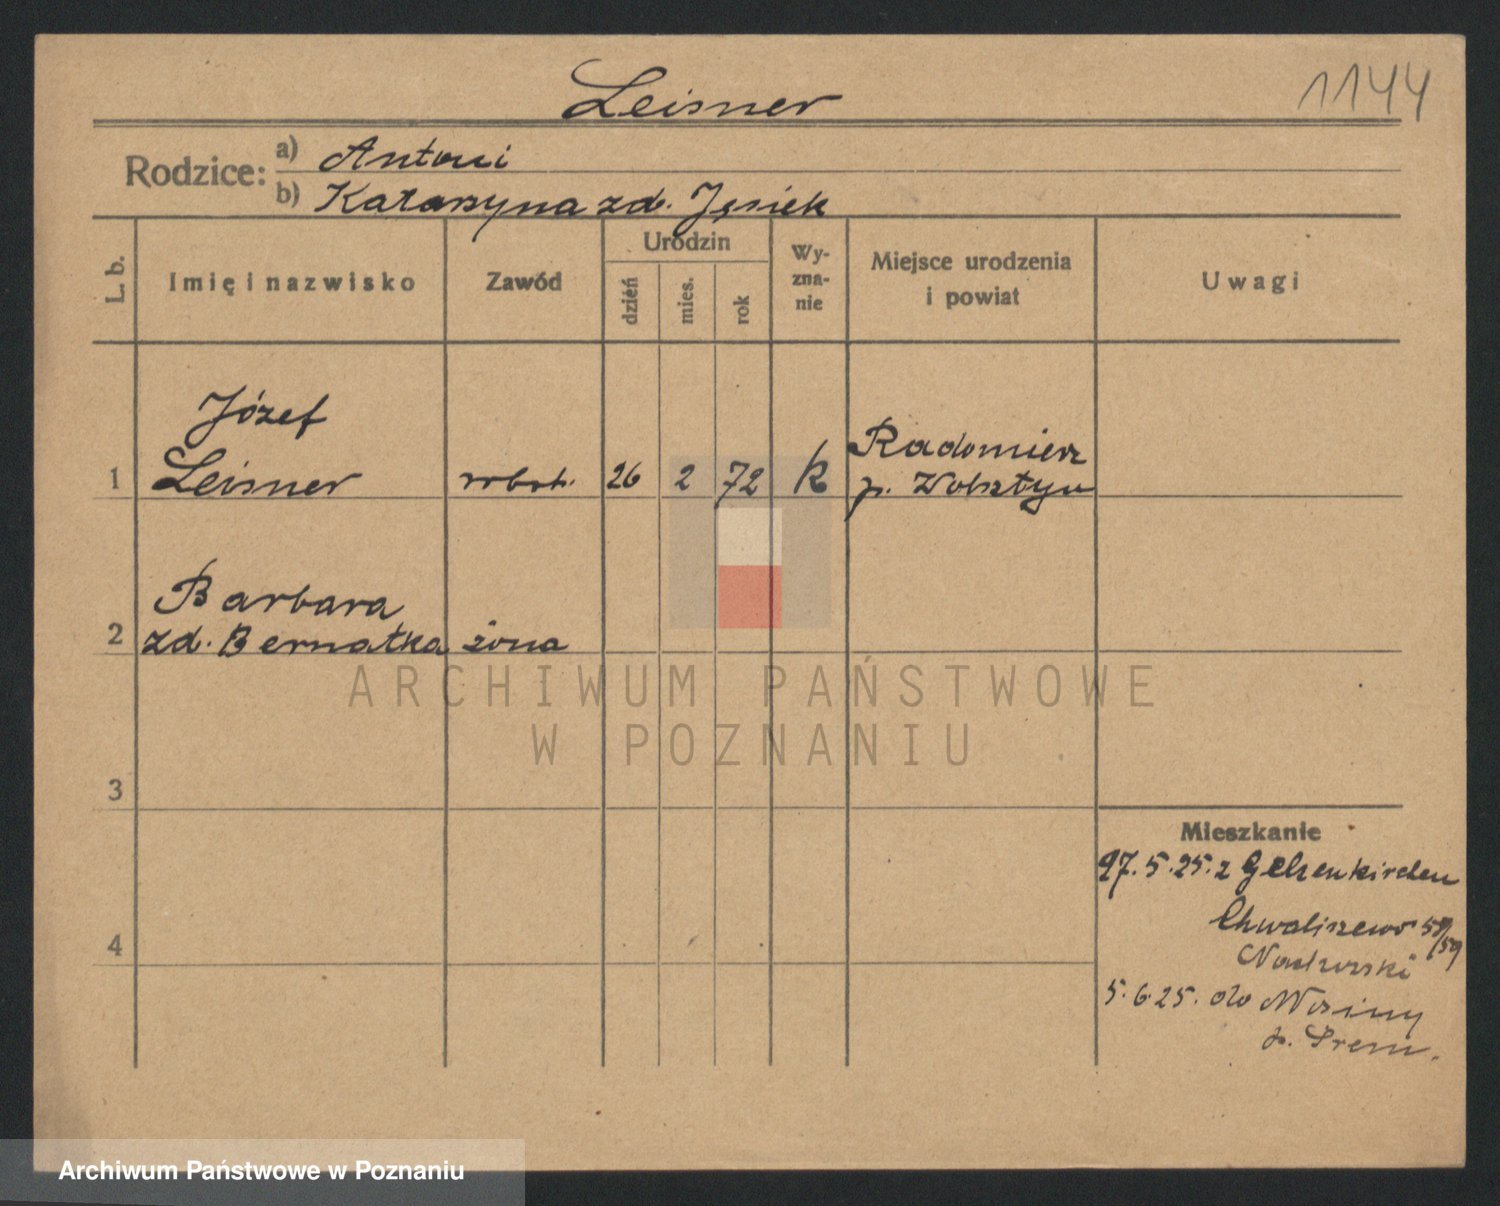 Leisner
1144
Rodzice:
a) Antoni
b) Katarzyna zd. Jęsiek
L. b.
Imię i nazwisko
Zawód
Urodzin
dzień
mies.
rok
Wy-
zna-
nie
Miejsce urodzenia
i powiat
Uwagi
Józef
1 Leisner robot. 26 2 72 k
Radomierz
p. Wolsztyn
Barbara
2 zd. Bernatka żona
3
4
Mieszkanie
27. 5. 25. z Gelsenkirchen
Chwaliszewo 58/59
5. 6. 25. do Mosiny
p. Śrem.
ARCHIWUM PAŃSTWOWE
W POZNANIU
Archiwum Państwowe w Poznaniu